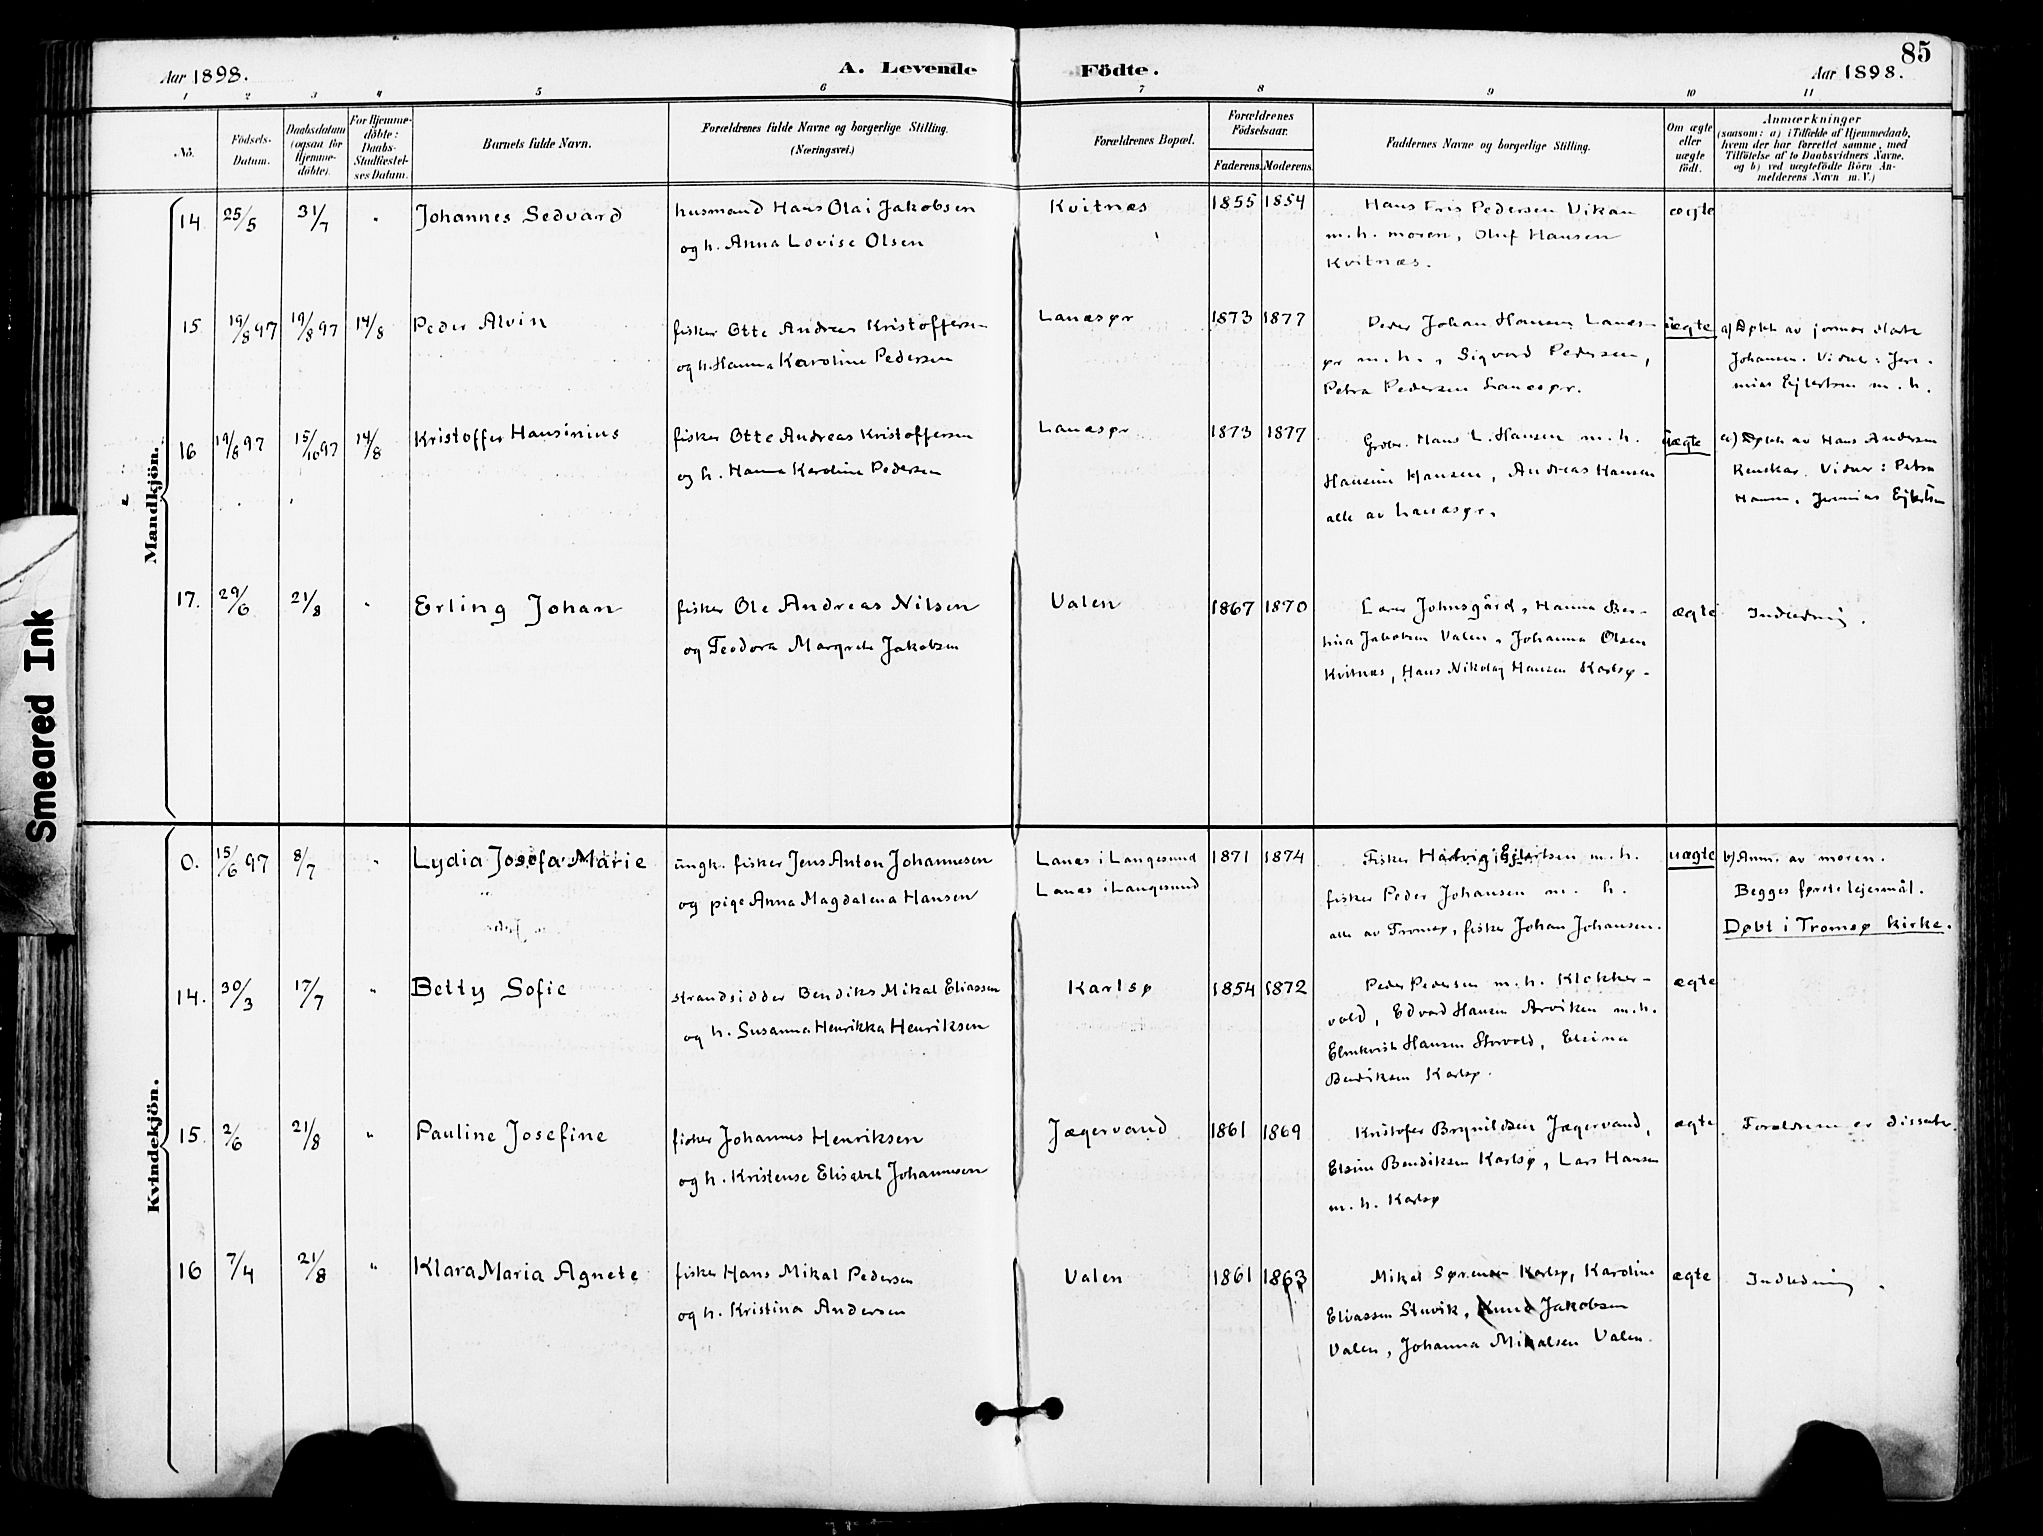 85
Aar 1898.
A. Levende Födte.
Aar 1898.
1 2 3 4 5 6 7 8 9 10 11
No.
Födsels-
Datum.
Daabsdatum
(ogsaa for
Hjemme-
döbte).
For Hjemme-
döbte:
Daabs-
Stadfæstel-
ses Datum.
Barnets fulde Navn.
Forældrenes fulde Navne og borgerlige Stilling.
(Næringsvei.)
Forældrenes Bopæl.
Forældrenes
Födselsaar.
Faderens. Moderens.
Faddernes Navne og borgerlige Stilling.
Om ægte
eller
uægte
födt.
Anmærkninger
(saasom: a) i Tilfælde af Hjemmedaab,
hvem der har forrettet samme, med
Tilföielse af to Daabsvidners Navne,
og b) ved uægtefödte Börn An-
melderens Navn m.V.)
Mandkjön.
14 25/5 31/7 " Johannes Sedvard
husmand Hans Olai Jakobsen
og h. Anna Lovise Olsen
Kvitnæs 1855 1854
Hans Fris Pedersen Vikan
m.h. moren, Oluf Hansen
Kvitnæs.
ægte
15 19/8 97 19/8 97 14/8 Peder Alvin
fisker Otte Andreas Kristoffersen
og h. Hanna Karoline Pedersen
Lanæsør 1873 1877
Peder Johan Hansen Lanæs-
ør m.h., Sigvard Pedersen,
Petra Pedersen Lanæsør.
ægte
a) Døbt av jormor
Johansen. Vidner: Jere-
mias Ejlertsen m.h.
16 19/8 97 15/10 97 14/8 Kristoffer Hansinius
fisker Otte Andreas Kristoffersen
og h. Hanna Karoline Pedersen
Lanæsør 1873 1877
Hans L. Hansen m.h.
Hansine Hansen, Andreas Hansen
alle av Lanæsør.
ægte
a) Døbt av Hans Andersen
Vidner: Petra
Hansen, Jeremias Ejlertsen
17. 29/6 21/8 " Erling Johan
fisker Ole Andreas Nilsen
og Teodora Margrete Jakobsen
Valen 1867 1870
Lærer Johnsgård, Hanna Ber-
Jakobsen Valen, Johanna Olsen
Kvitnæs, Hans Nikolaj Hansen Karlsø.
ægte
Indledning.
Kvindekjön.
0. 15/6 97 8/7 " Lydia Josefa Marie
ungk. fisker Jens Anton Johannesen
og pige Anna Magdalena Hansen
Lanæs i Langesund
Lanæs i Langesund
1871 1874
Fisker Hartvig Ejlertsen m.h.
fisker Peder Johansen m. h.
alle av Tromsø, fisker Johan Johansen.
uægte
b) Anm. av moren.
Begges første lejersmål.
Døbt i Tromsø kirke.
14. 30/3 17/7 " Betty Sofie
strandsidder Bendiks Mikal Eliassen
og h. Susanna Henrikka Henriksen
Karlsø 1854 1872
Peder Pedersen m.h. Klokker-
vold, Edvard Hansen Arviken m.h.
Hansen Storvold, Elsina
Bendiksen Karlsø.
ægte
15. 2/6 21/8 " Pauline Josefine
fisker Johannes Henriksen
og h. Kristense Elisabet Johannesen
Jægervand 1861 1869
Kristofer Brynildsen Jægervand,
Elsine Bendiksen Karlsø, Lars Hansen
m.h. Karlsø
ægte
Forældrene er dissenter
16 7/4 21/8 " Klara Maria Agnete
fisker Hans Mikal Pedersen
og h. Kristina Andersen
Valen 1861 1863
Mikal Sørensen Karlsø, Karoline
Eliassen Stuvik, Knud Jakobsen
Valen, Johanna Mikalsen Valen.
ægte
Indledning.
Smeared Ink